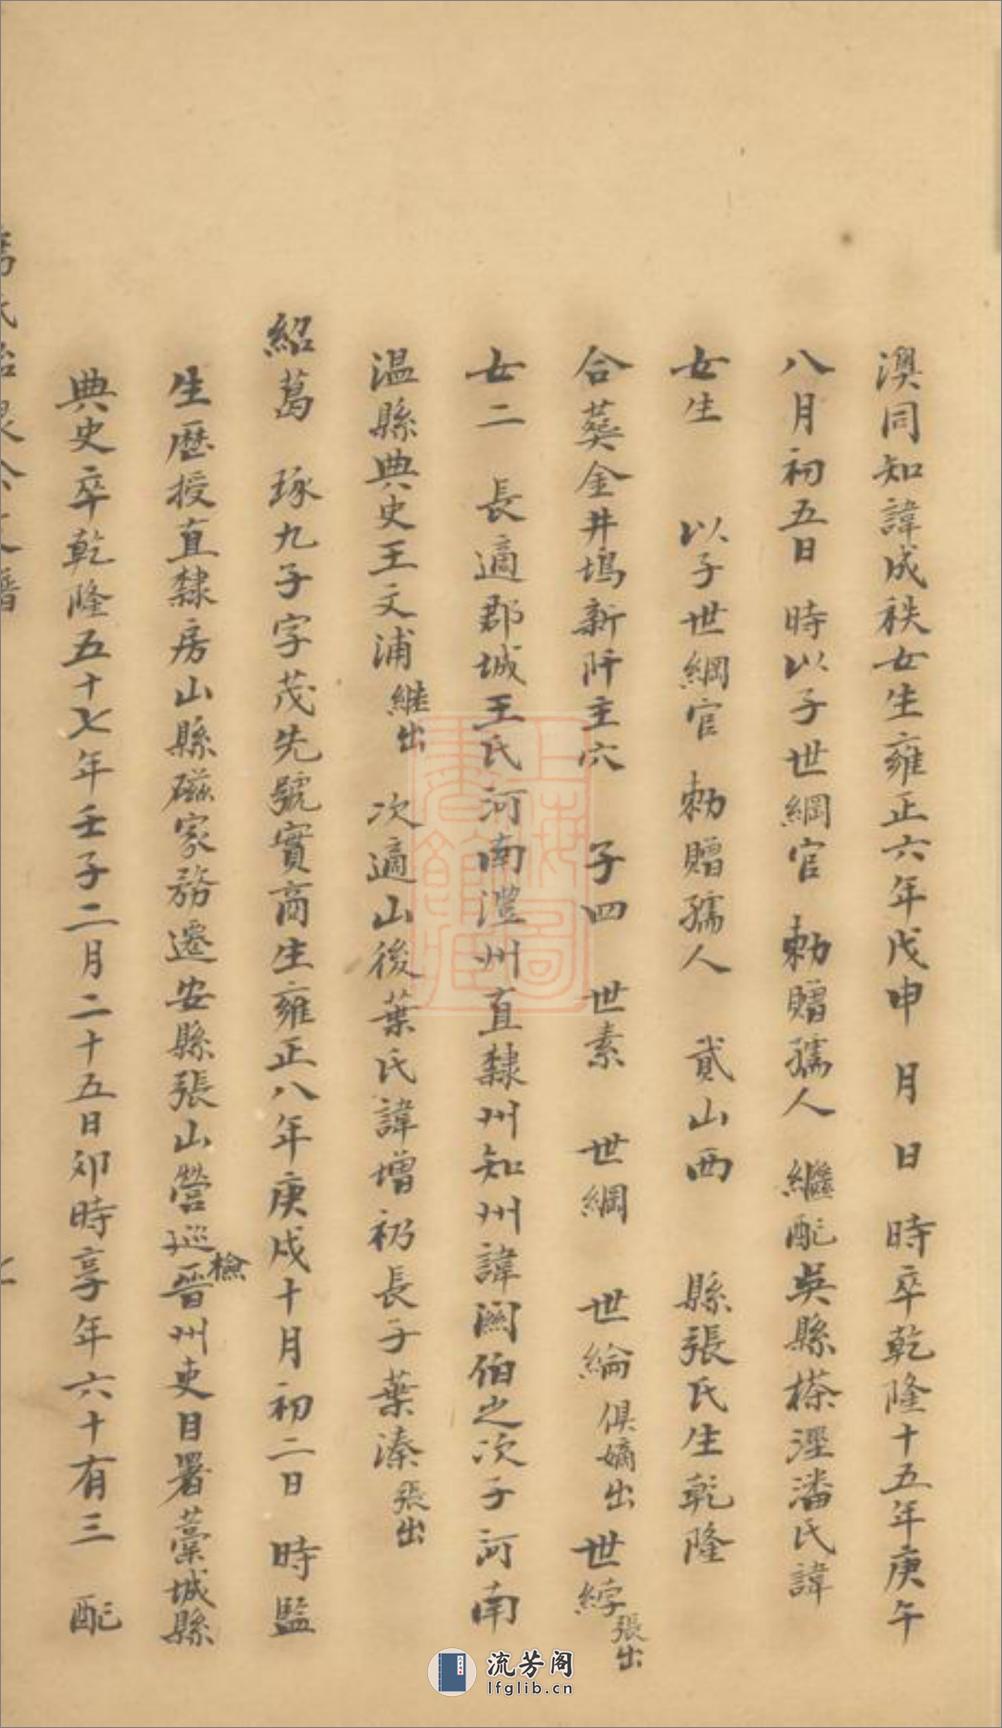 澳同知諱成秩女生雍正六年戊申 月 日 時卒乾隆十五年庚午
八月初五日 時以子世綱官 勅贈孺人 繼配吳縣楂涇潘氏諱
女生 以子世綱官 勅贈孺人 貳山西 縣張氏生乾隆
合葬金井塢新阡主穴 子四 世素 世綱 世綸俱嫡出 世綍張出
女二 長適郡城王氏河南澧州直隸州知州諱闕伯之次子河南
温縣典史王文浦繼出 次適山後葉氏諱增礽長子葉溱張出
紹蒍 琢九子字茂先號實商生雍正八年庚戌十月初二日 時監
生歷授直隸房山縣磁家務遷安縣張山營巡檢晉州吏目署藁城縣
典史卒乾隆五十七年壬子二月二十五日卯時享年六十有三 配
上海圖書館藏
流芳阁
lfglib.cn